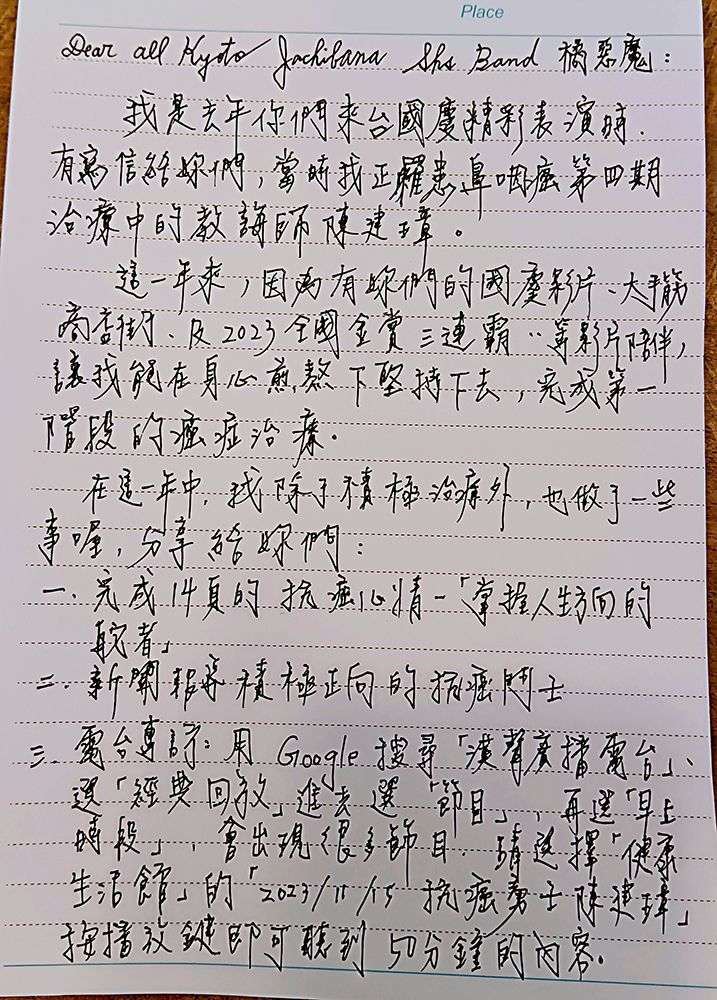 Place
Dear all Kyoto Tachibana Shs Band 橘惡魔：
我是去年你們來台國慶精彩表演時，
有寫信給妳們，當時我正罹患鼻咽癌第四期
治療中的教誨師陳建璋。
這一年來，因為有妳們的國慶影片、大手筋
商店街、及2023全國金賞三連霸‥等影片陪伴，
讓我能在身心煎熬下堅持下去，完成第一
階段的癌症治療。
在這一年中，我除了積極治療外，也做了一些
事喔，分享給妳們：
一、完成14頁的抗癌心情－「掌握人生方向的
舵者」
二、新聞報導積極正向的抗癌鬥士
三、電台專訪：用 Google 搜尋「漢聲廣播電台」、
選「經典回放」進去選「節目」，再選「早上
時段」，會出現很多節目，請選擇「健康
生活館」的「2023/11/15 抗癌勇士陳建璋」
按播放鍵即可聽到50分鐘的內容。